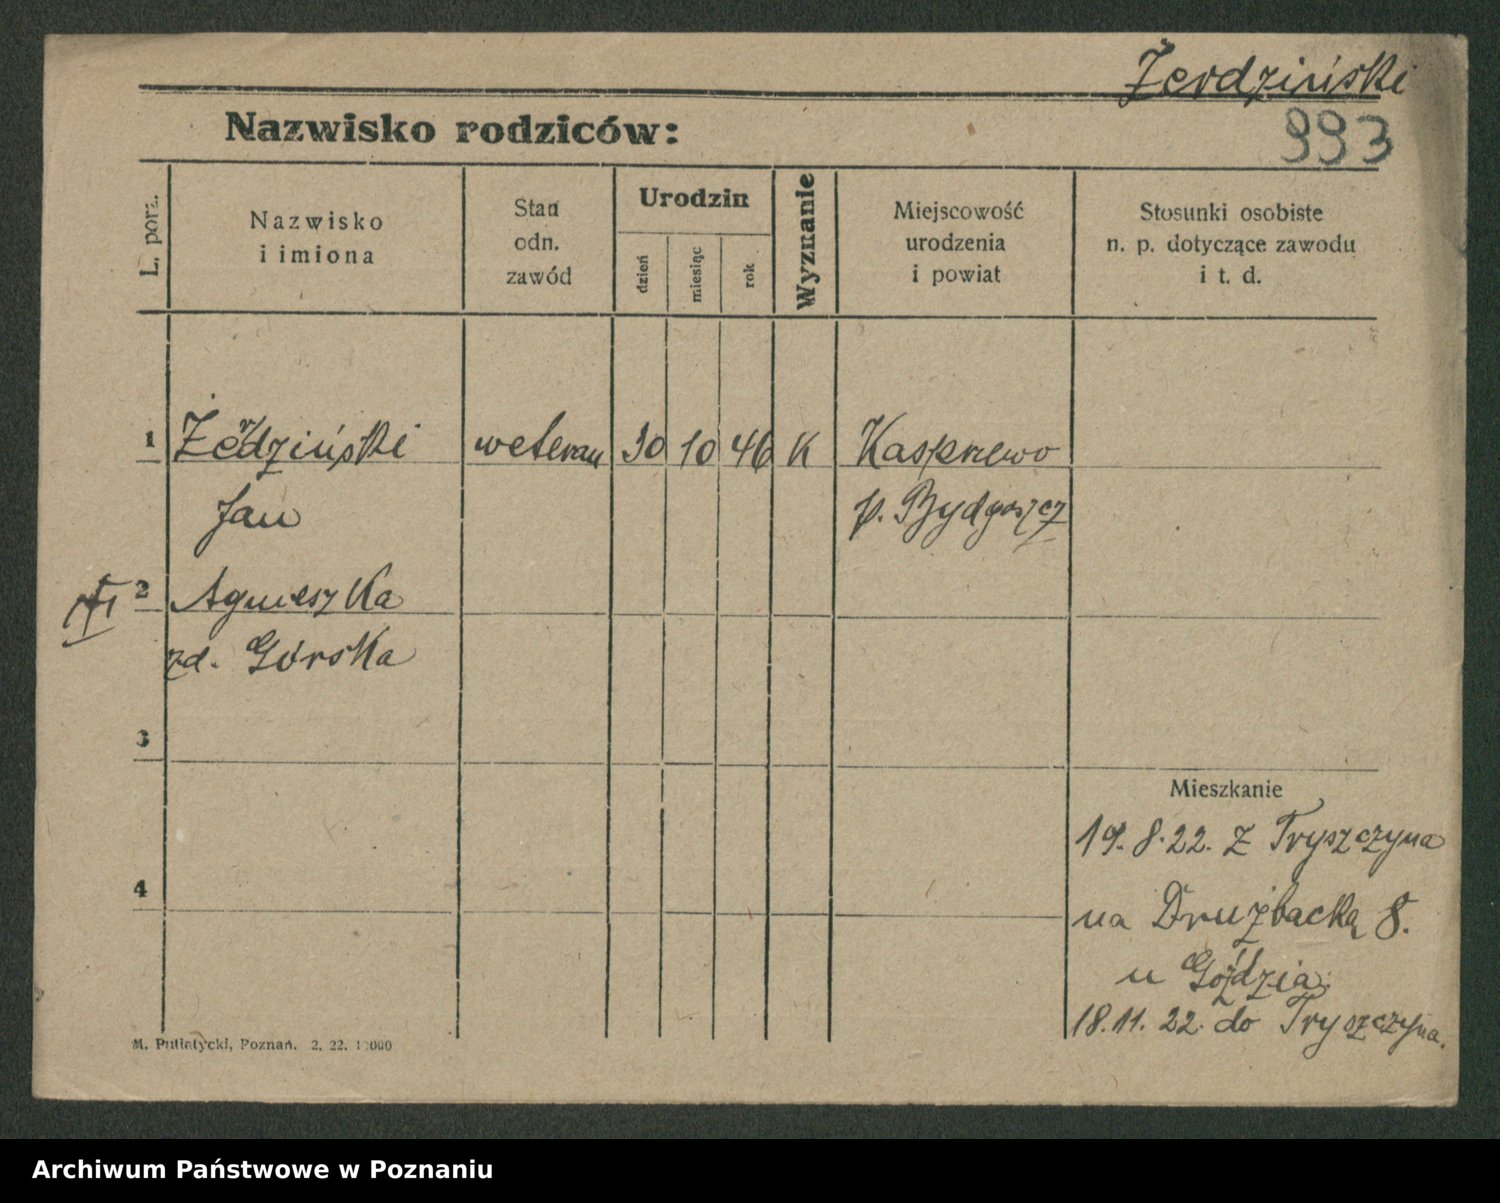 Żerdziński
Nazwisko rodziców:
993
L. porz.
Nazwisko
i imiona
Stan
odn.
zawód
Urodzin
dzień
miesiąc
rok
Wyznanie
Miejscowość
urodzenia
i powiat
Stosunki osobiste
n. p. dotyczące zawodu
i t. d.
1 Żerdziński weteran 30 10 46 K Kasprzewo
Jan p. Bydgoszcz
2 Agnieszka
zd. Górska
3
Mieszkanie
19. 8. 22. z Tryszczyna
4
na Drużbacką 8.
u Góździa
18. 11. 22. do Tryszczyna.
M. Putiatycki, Poznań. 2. 22. 11000
Archiwum Państwowe w Poznaniu